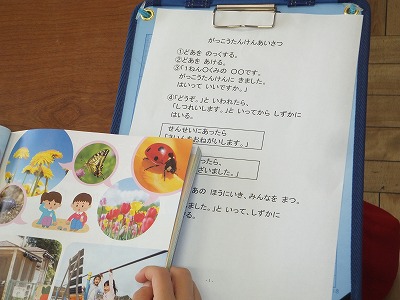 がっこうたんけんあいさつ
①どあを のっくする。
②どあを あける。
③「1ねん〇くみの 〇〇です。
がっこうたんけんに きました。
はいって いいですか。」
④「どうぞ。」と いわれたら、
「しつれいします。」と いってから しずかに
はいる。
せんせいにあったら
おねがいします。」
あったら、
ざいました。」
あの ほうにいき、みんなを まつ。
ました。」と いって、しずかに
る。